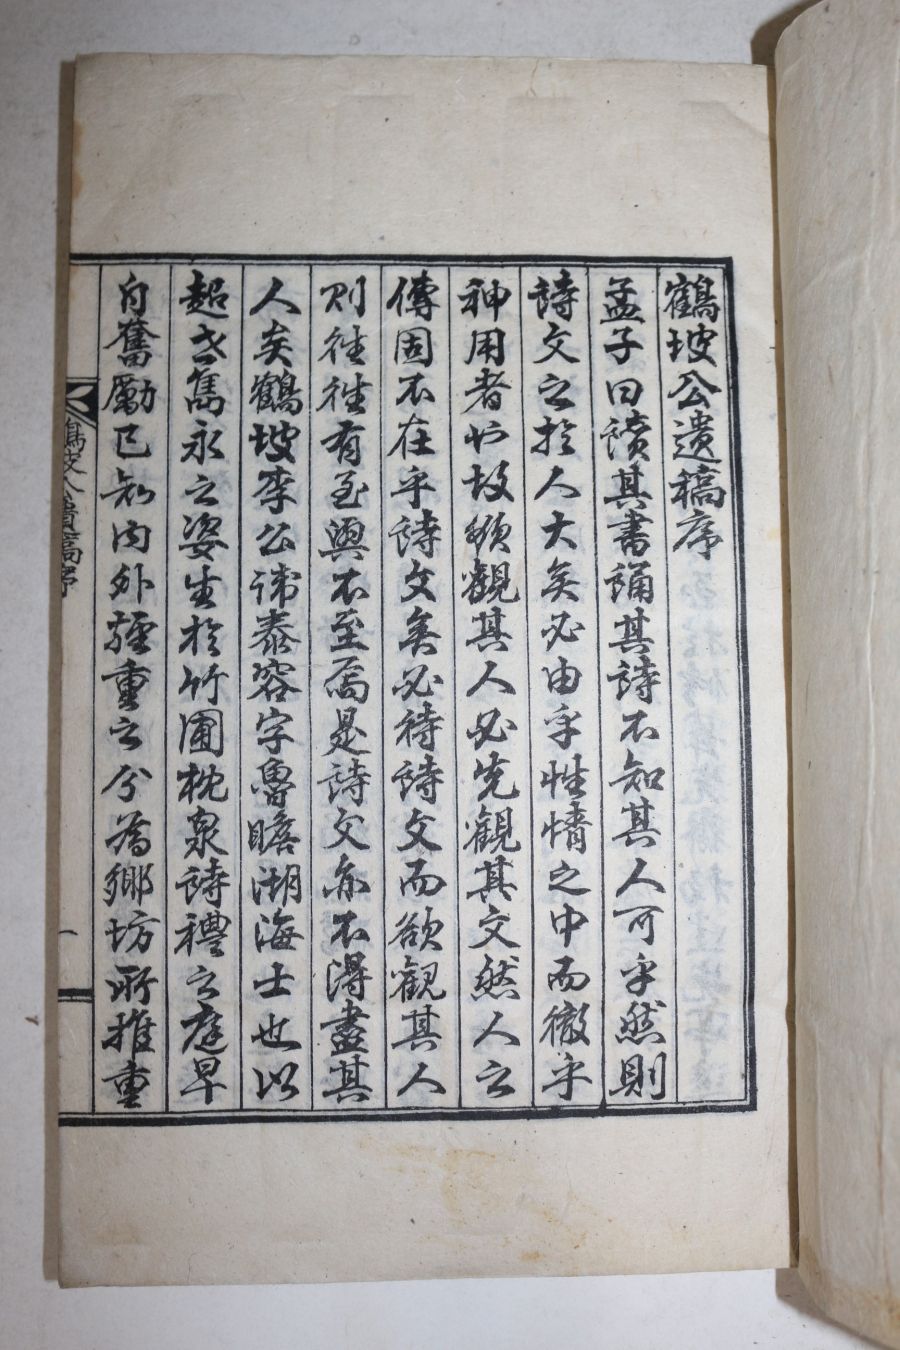 鶴坡公遺稿序
孟子曰讀其書誦其詩不知其人可乎然則
詩文之於人大矣必由乎性情之中而徹乎
神用者也故欲觀其人必先觀其文然人之
傳固不在乎詩文矣必待詩文而欲觀其人
則往往有至興不至焉是詩文亦不得盡其
人矣鶴坡李公諱泰容字魯瞻湖海士也以
超古雋永之姿生於竹圃枕泉詩禮之庭早
自奮勵已知內外輕重之分爲鄉坊所推重
鶴坡公遺稿序
一